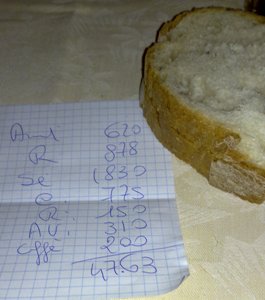 620
R 878
Se 1830
C 175
R 150
AV. 310
Cffè 200
47.63